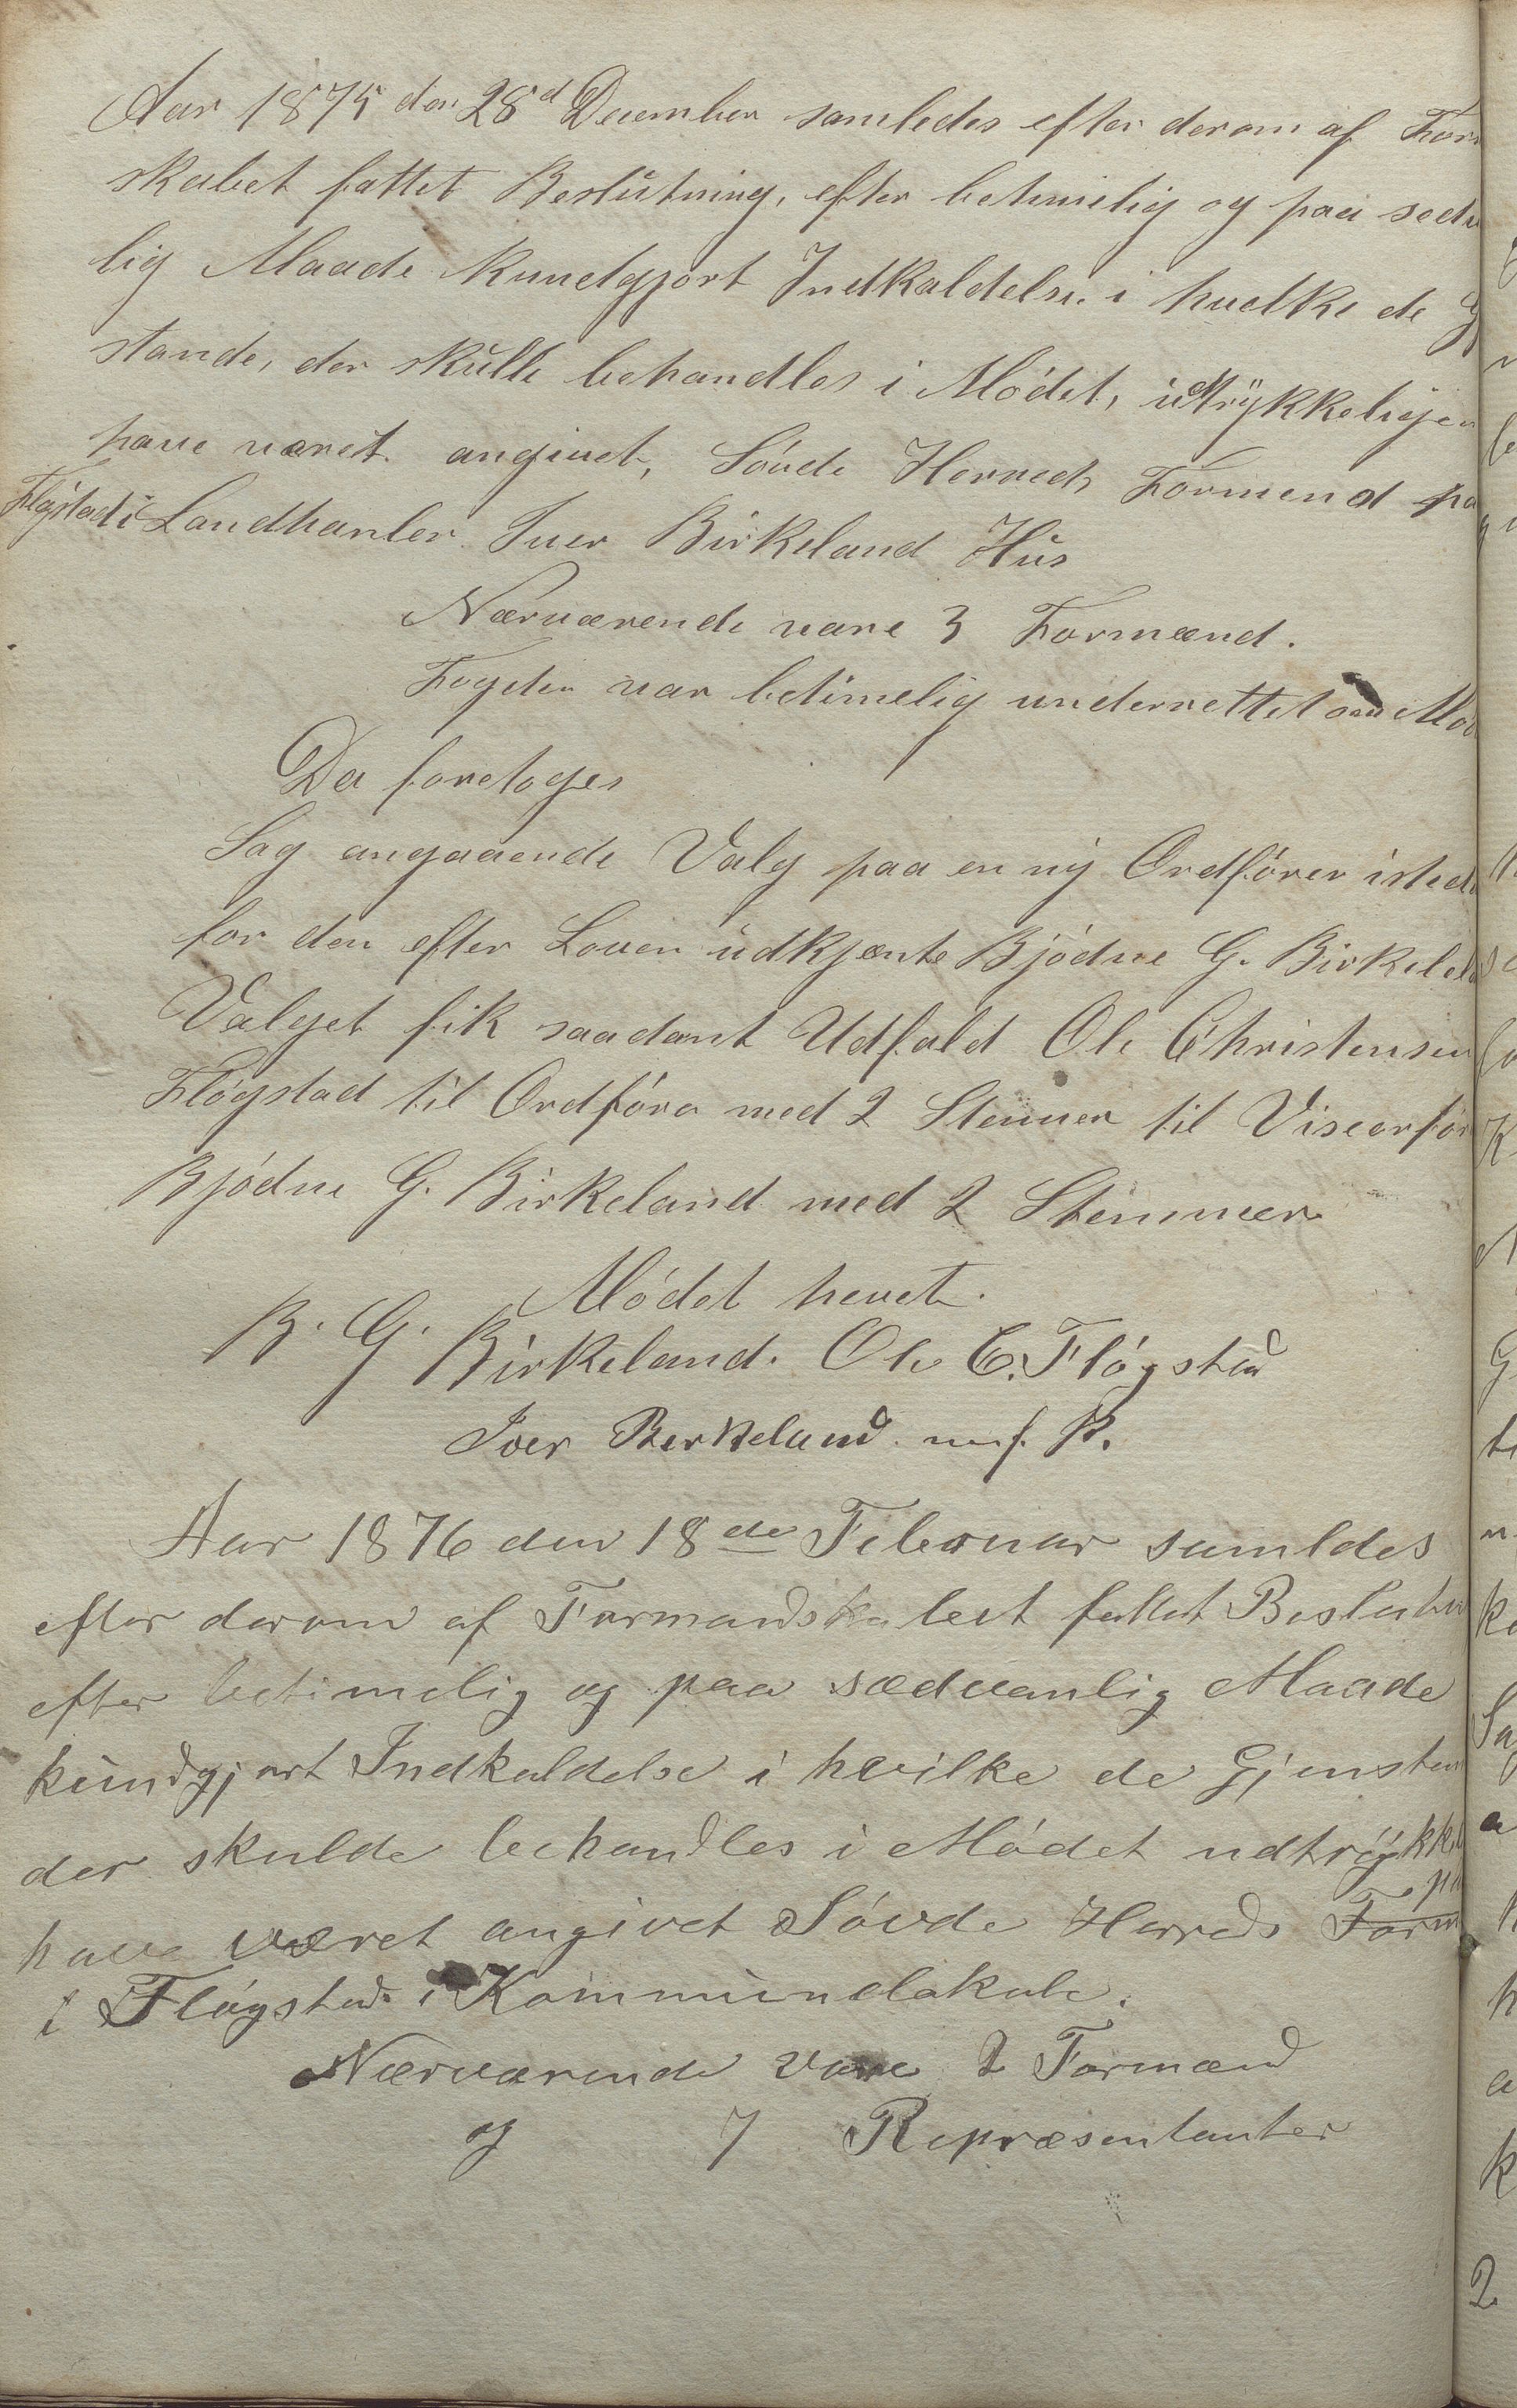 Aar 1875 den 28d December samledes efter derom af For
skabet fattet Beslutning, efter betimelig og paa sedv
lig Maade kundgjort Indkaldelse i hvilke de Gj
stande, der skulle behandles i Mödet, udtrykkeligen
have været angivet, Sövde Herreds Formend pa
Flögstad i Landhanler Iver Birkeland Hus
Nærværende vare 3 Formænd.
Fogden var betimelig underrettet om Mö
Da foretoges
Sag angaaende Valg paa en ny Ordförer isted
for den efter Loven udkjente Bjödne G. Birkeland
Valget fik saadant Udfald Ole Christensen
Flögstad til Ordförer med 2 Stemmer til Viseorför
Bjödne G. Birkeland med 2 Stemmer
Mödet hevet.
B. G. Birkeland. Ole C. Flögstad
Iver Berkeland m. f. P.
Aar 1876 den 18de Februar samldes
efter derom af Formandskabet fattet Beslutn
efter betimelig og paa sædvanlig Maade
kundgjort Indkaldelse i hvilke de Gjensten
der skulde behandles i Mödet udtrÿkkel
have været angivet Sövde Herreds Form pa
i Flögstad i Kommunelokale.
Nærværende vare 2 Formænd
og 7 Repræsentanter